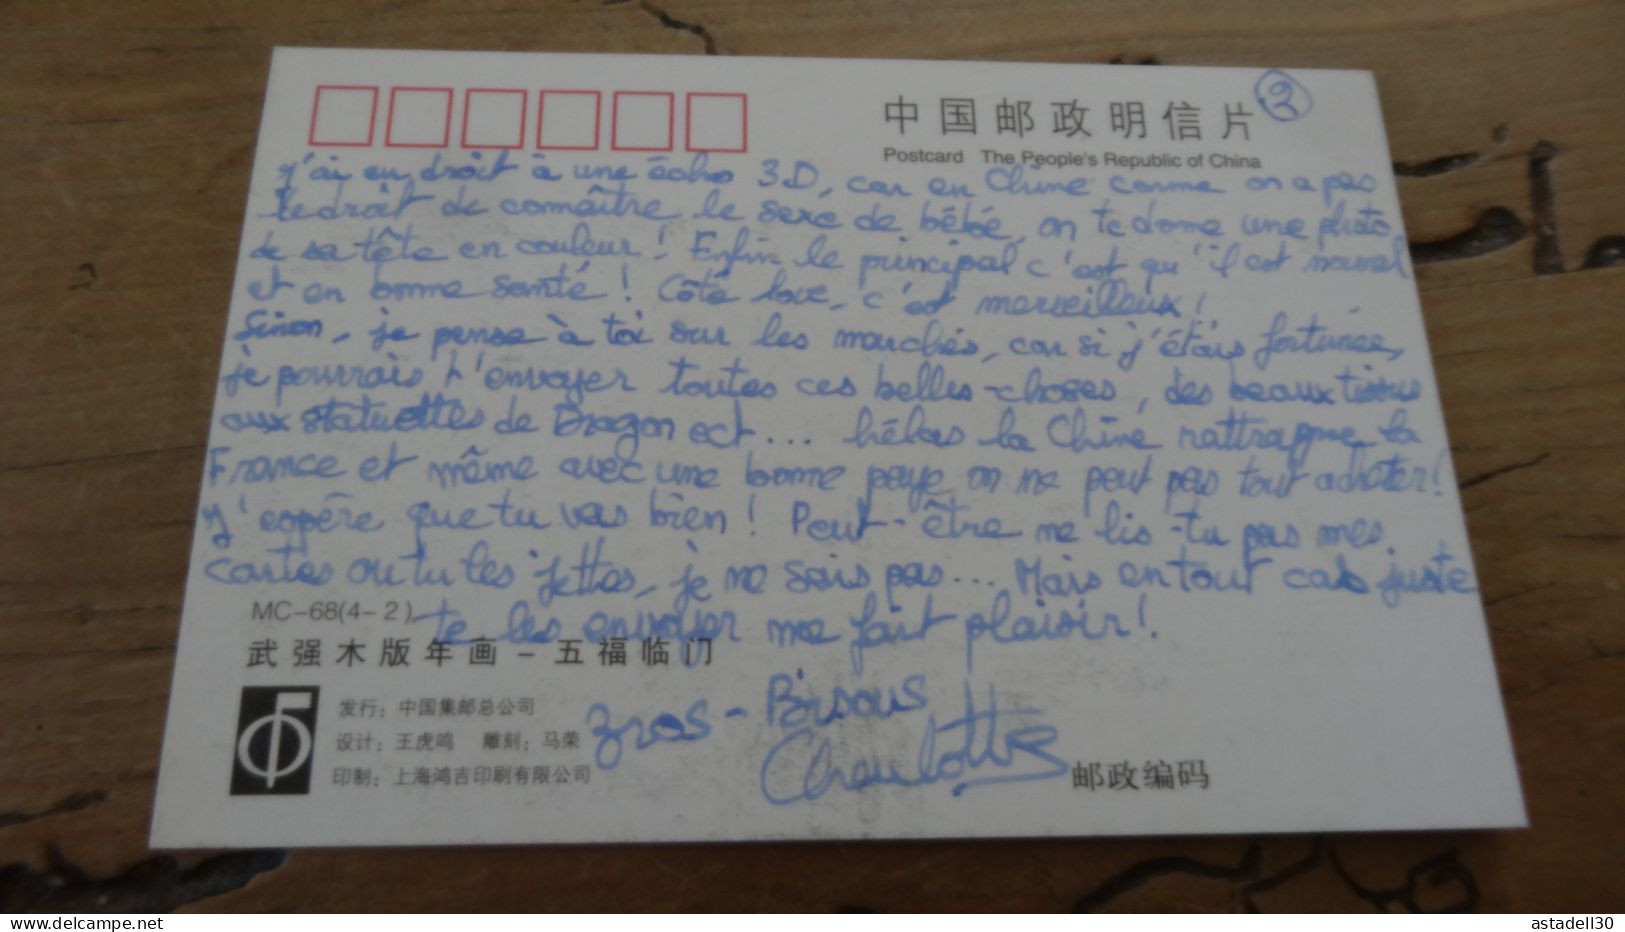 中国邮政明信片 2
Postcard The People's Republic of China
J'ai eu droit à une écho 3D, car en Chine comme on a pas
le droit de connaître le sexe de bébé, on te donne une photo
de sa tête en couleur! Enfin le principal c'est qu'il est normal
et en bonne santé! Côté love, c'est merveilleux!
Sinon, je pense à toi sur les marchés, car si j'étais fortunée,
je pourrais t'envoyer toutes ces belles choses, des beaux tissus
aux statuettes de Dragon ect... hélas la Chine rattrape la
France et même avec une bonne paye on ne peut pas tout acheter!
J'espère que tu vas bien! Peut-être ne lis-tu pas mes
cartes ou tu les jettes, je ne sais pas... Mais en tout cas juste
te les envoyer me fait plaisir!
MC-68(4-2)
武强木版年画-五福临门
发行:中国集邮总公司
设计:王虎鸣 雕刻:马荣
印制:上海鸿吉印刷有限公司
Gros-Bisous
Charlotte
邮政编码
delcampe.net
astadell30